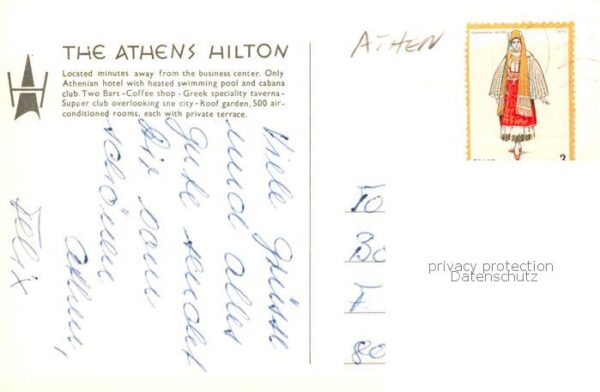 THE ATHENS HILTON
Located minutes away from the business center. Only
Athenian hotel with heated swimming pool and cabana
club. Two Bars - Coffee shop - Greek speciality taverna -
Supper club overlooking tne city - Roof garden, 500 air-
conditioned rooms, each with private terrace.
ATHEN
Viele Grüsse
und alles
Gute sendet
Dir vom
schönen
Athen,
Felix
To
Bo
F.
80
privacy protection
Datenschutz